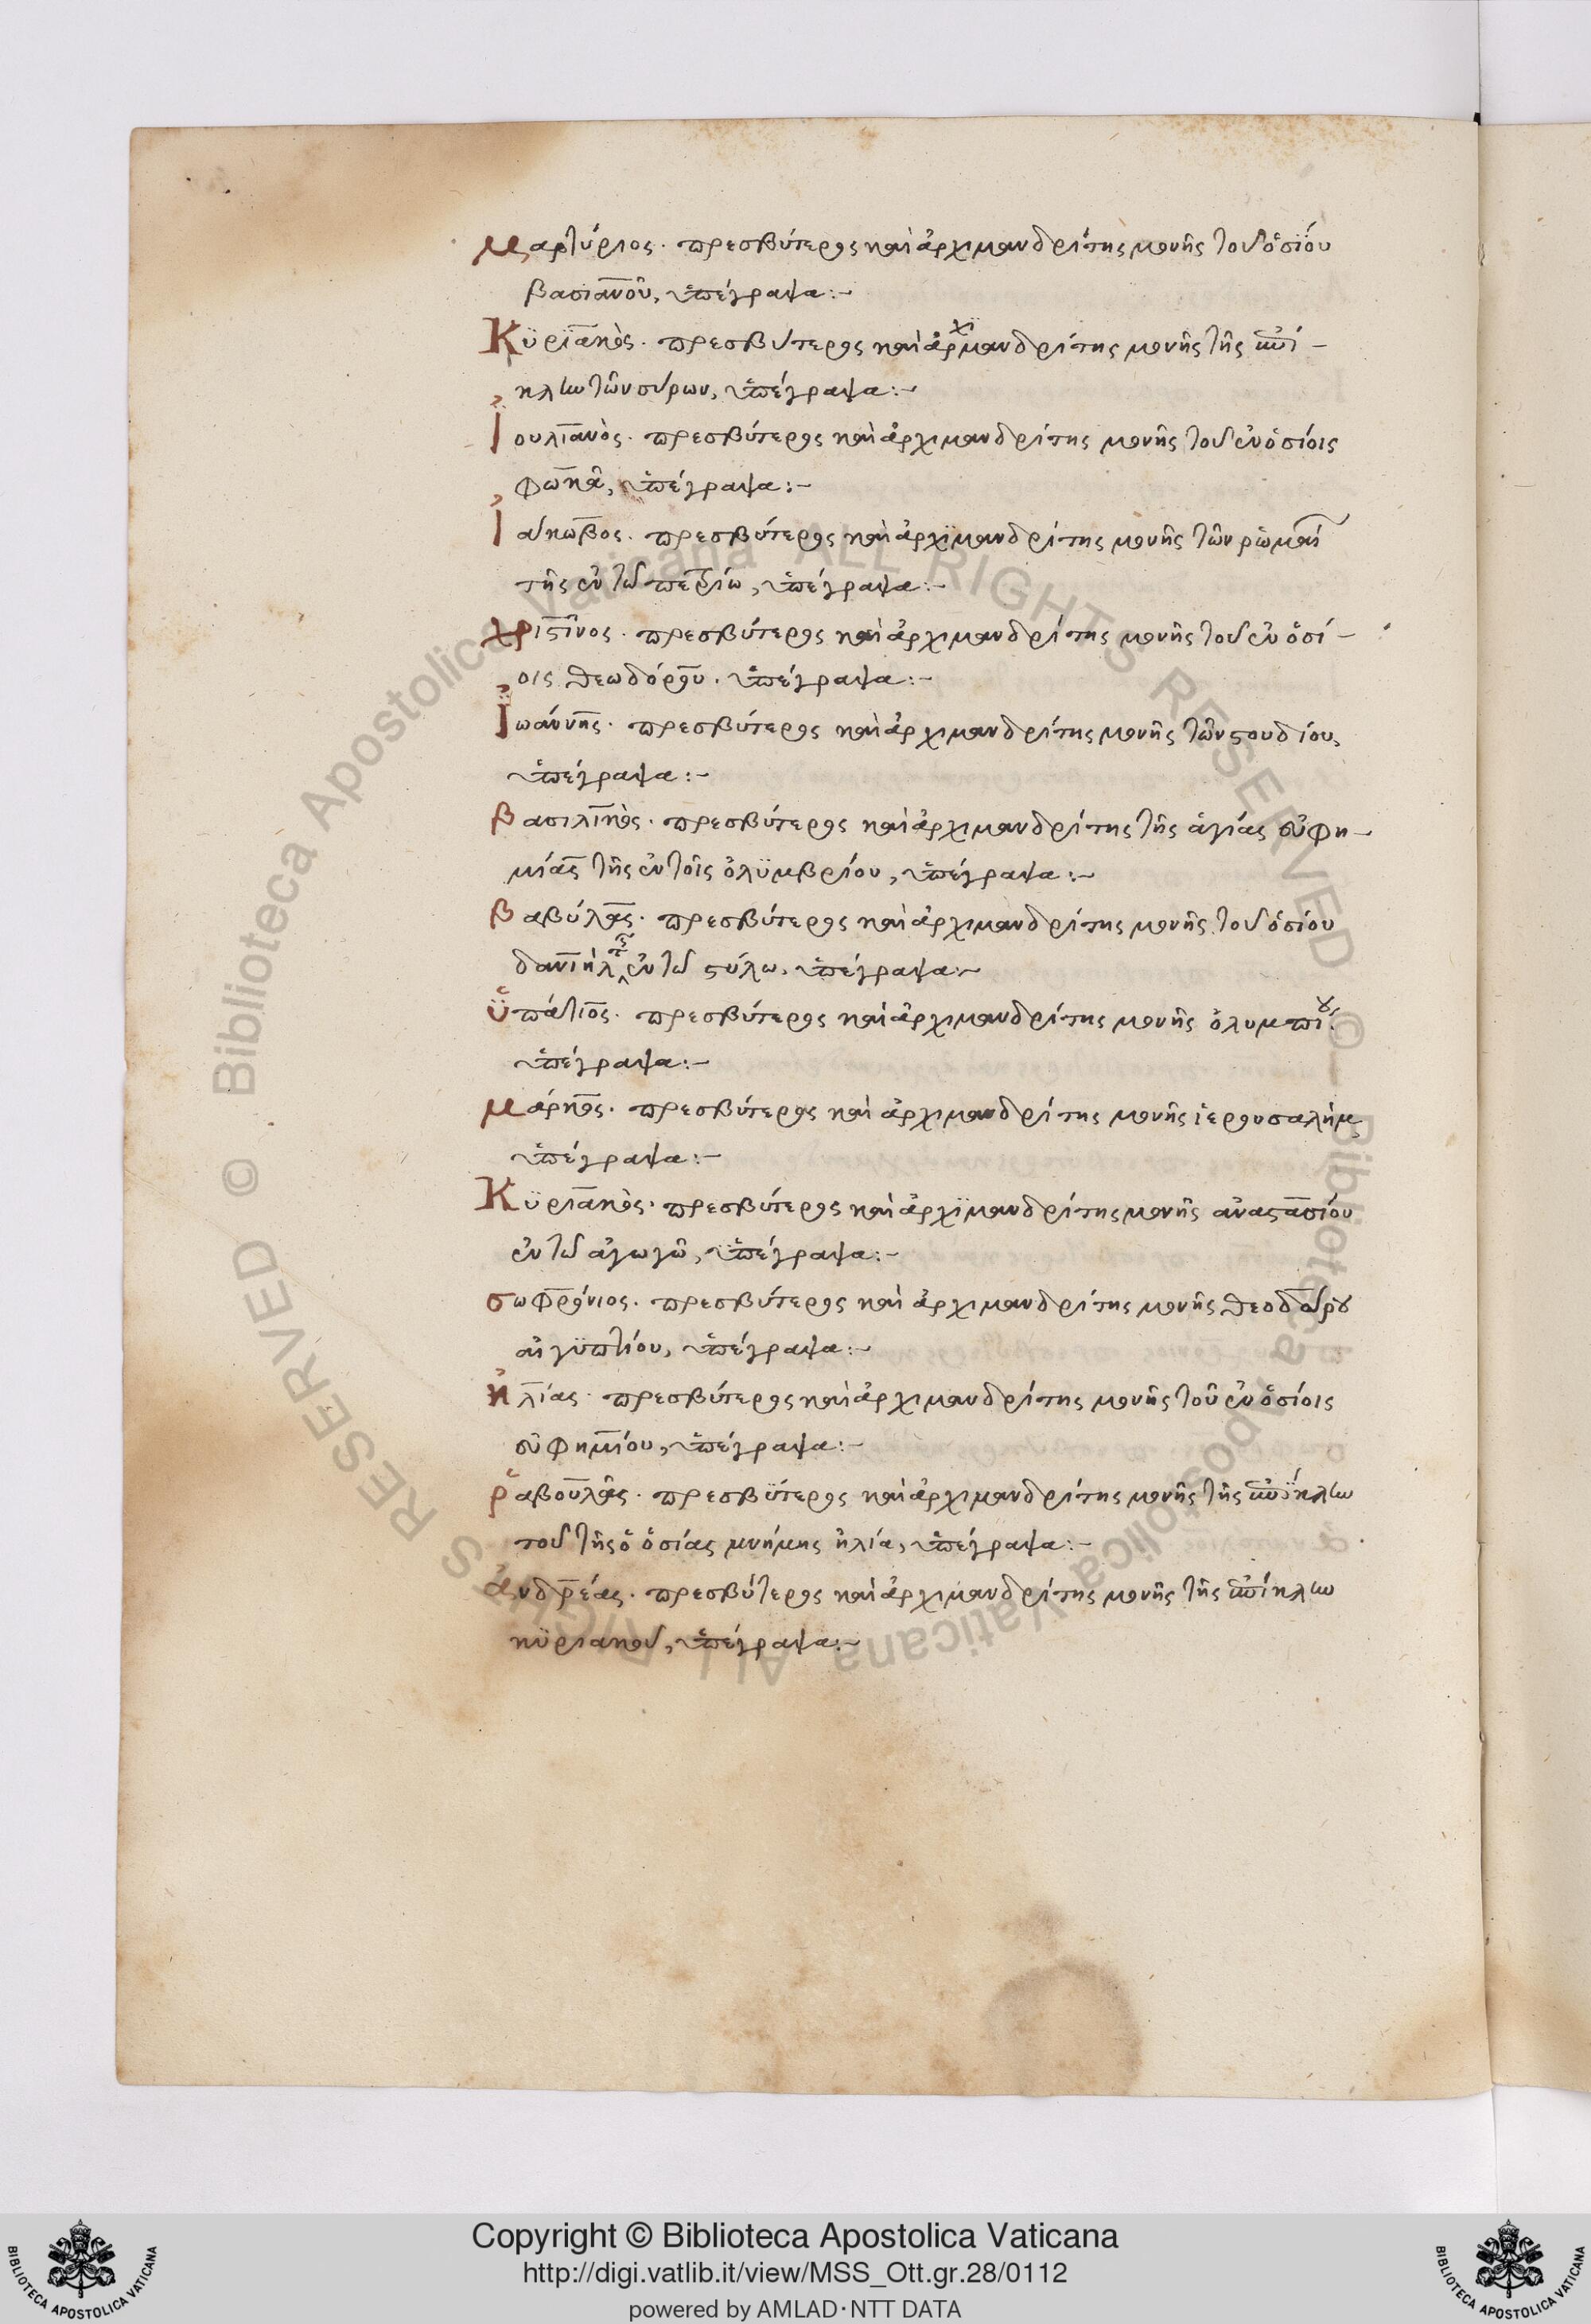 Μαρτύριος· πρεσβύτερος καὶ ἀρχιμανδρίτης μονῆς τοῦ ὁσίου
βασιανοῦ, ὑπέγραψα:–
Κϋριακὸς· πρεσβύτερος καὶ ἀρχιμανδρίτης μονῆς τῆς
τῶν σύρων, ὑπέγραψα:–
Ἰουλιανὸς· πρεσβύτερος καὶ ἀρχιμανδρίτης μονῆς τοῦ ἐν ὁσίοις
φωκᾶ, ὑπέγραψα:–
Ἰάκωβος· πρεσβύτερος καὶ ἀρχϊμανδρίτης μονῆς τῶν
ὑπέγραψα:–
χριστῖνος· πρεσβύτερος καὶ ἀρχιμανδρίτης μονῆς τοῦ ἐν ὁσί–
οις θεωδόρου· ὑπέγραψα:–
Ἰωάννης· πρεσβύτερος καὶ ἀρχιμανδρίτης μονῆς τῶν στουδίου,
ὑπέγραψα:–
βασιλικὸς· πρεσβύτερος καὶ ἀρχιμανδρίτης τῆς ἁγίας εὐφη–
μίας τῆς ἐν τοῖς ὀλϋμβρίου, ὑπέγραψα:–
βαβύλας· πρεσβύτερος καὶ ἀρχιμανδρίτης μονῆς τοῦ ὁσίου
δανιὴλ ἐν τῶ στύλω, ὑπέγραψα:–
ὑπάτιος· πρεσβύτερος καὶ ἀρχιμανδρίτης μονῆς ὀλυμπίου
ὑπέγραψα:–
μάρκος· πρεσβύτερος καὶ ἀρχιμανδρίτης μονῆς ἱερουσαλὴμ,
ὑπέγραψα:–
Κϋριακὸς· πρεσβύτερος καὶ ἀρχϊμανδρίτης μονῆς ἀναστασίου
ἐν τῶ ἀγωγῶ, ὑπέγραψα:–
σωφρόνιος· πρεσβύτερος καὶ ἀρχιμανδρίτης μονῆς θεοδώρου
αἰγϋπτίου, ὑπέγραψα:–
ἠλίας· πρεσβύτερος καὶ ἀρχιμανδρίτης μονῆς τοῦ ἐν ὁσίοις
εὐφημίου, ὑπέγραψα:–
ῥαβουλᾶς· πρεσβϋτερος καὶ ἀρχιμανδρίτης μονῆς τῆς
τοῦ τῆς ὁ ὁσίας μνήμης ἠλία, ὑπέγραψα:–
ἀνδρέας· πρεσβύτερος καὶ ἀρχιμανδρίτης μονῆς τῆς
κϋριακοῦ, ὑπέγραψα:–
Copyright © Biblioteca Apostolica Vaticana
http://digi.vatlib.it/view/MSS_Ott.gr.28/0112
powered by AMLAD·NTT DATA